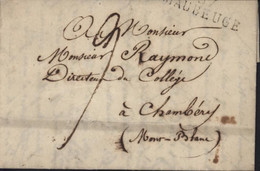 MAUBEUGE
A Monsieur
Monsieur Raymond
Directeur du Collège
à Chambéry
(Mont-Blanc)